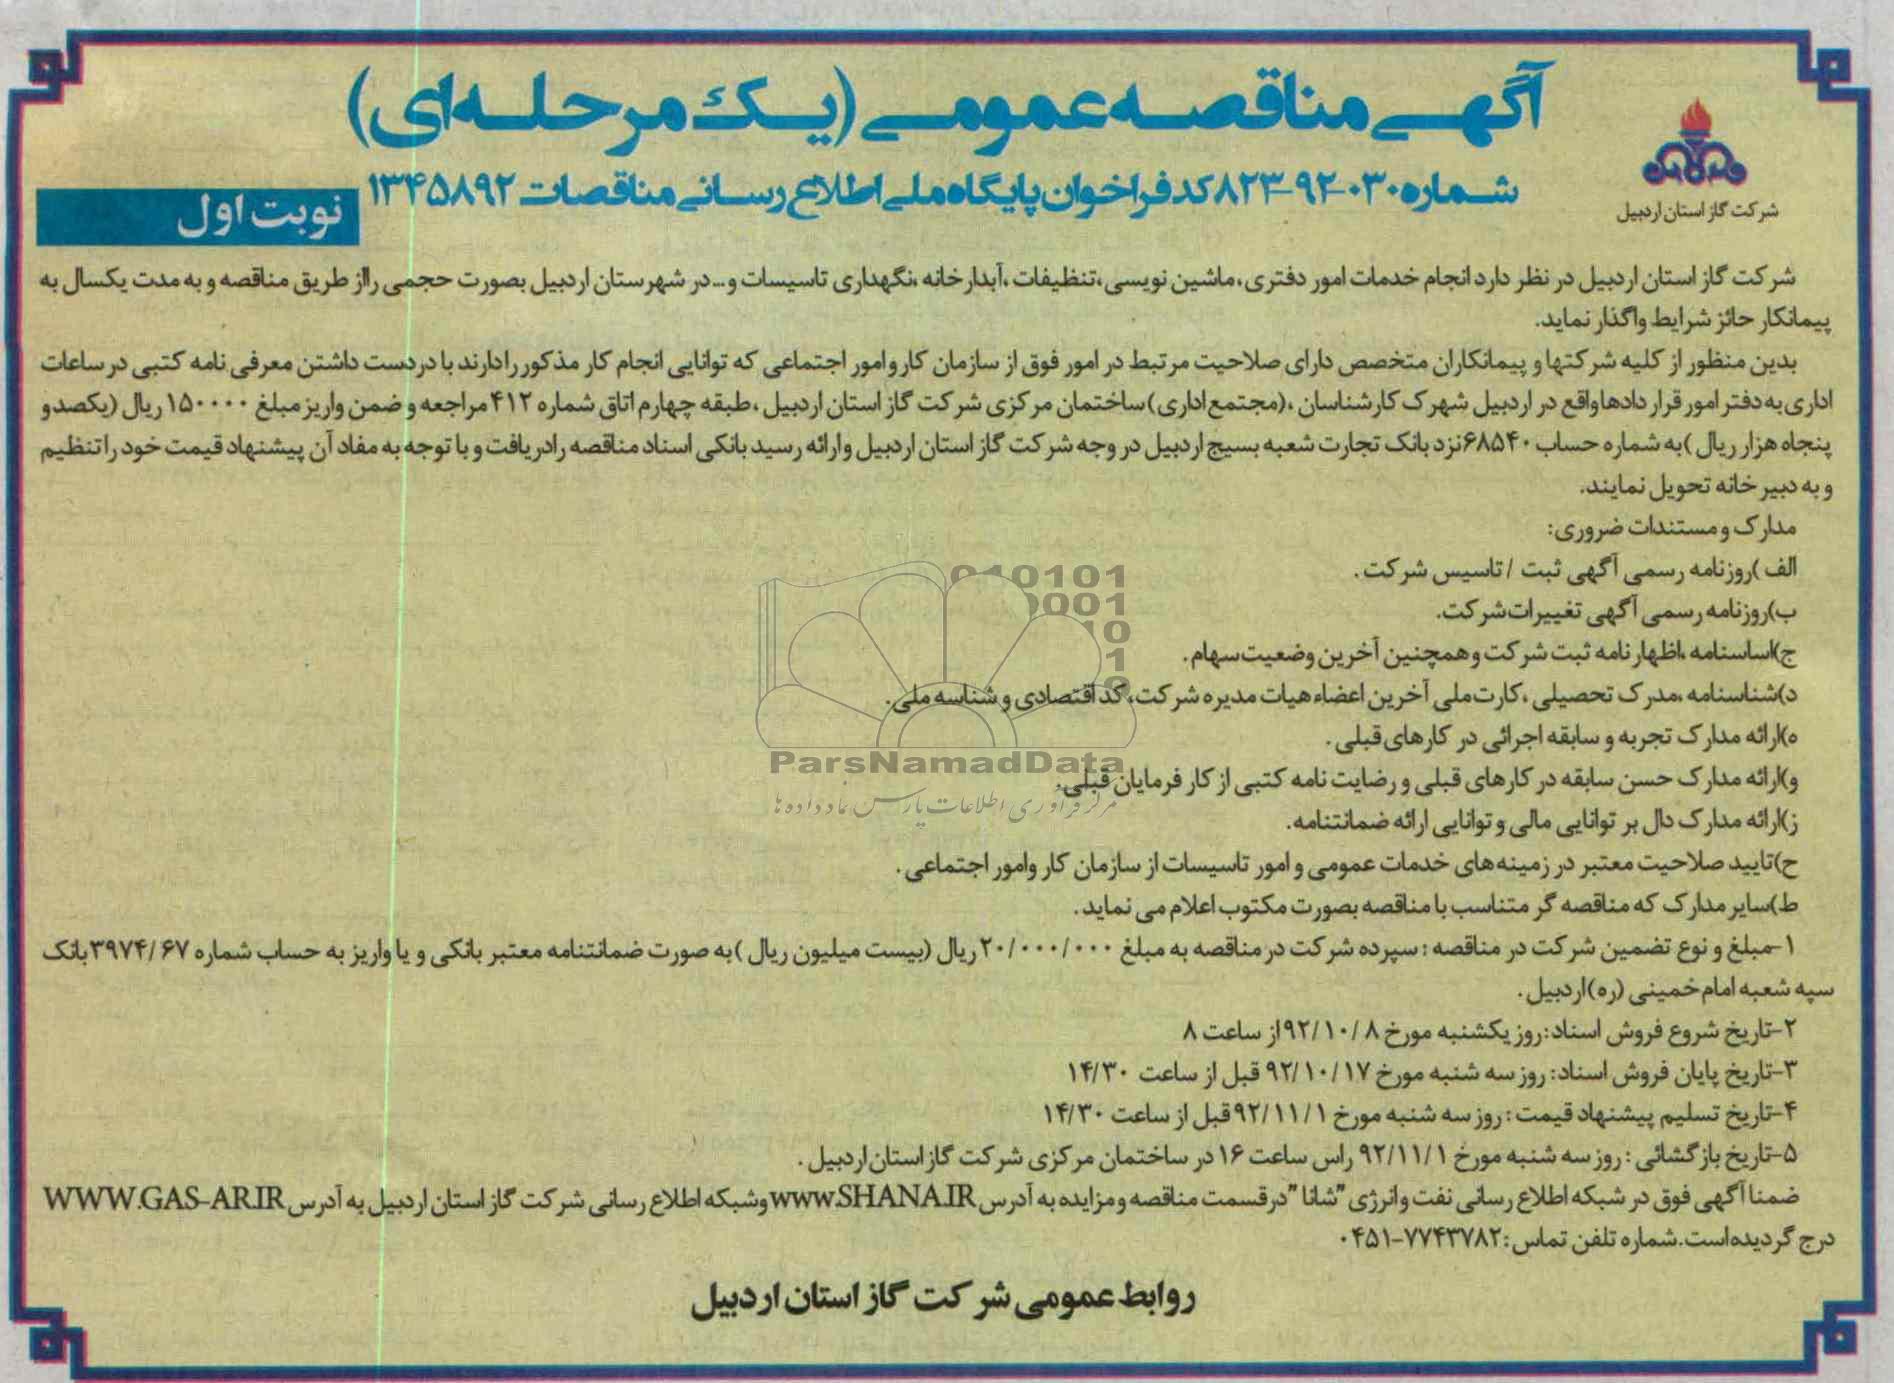 آگهی مناقصه عمومی (یک مرحله‌ای)
شماره ۰۳۰-۹۲-۸۲۳ کد فراخوان پایگاه ملی اطلاع رسانی مناقصات ۱۳۴۵۸۹۲
شرکت گاز استان اردبیل
نوبت اول
شرکت گاز استان اردبیل در نظر دارد انجام خدمات امور دفتری، ماشین نویسی، تنظیفات، آبدارخانه، نگهداری تاسیسات و... در شهرستان اردبیل بصورت حجمی را از طریق مناقصه و به مدت یکسال به
پیمانکار حائز شرایط واگذار نماید.
بدین منظور از کلیه شرکتها و پیمانکاران متخصص دارای صلاحیت مرتبط در امور فوق از سازمان کار و امور اجتماعی که توانایی انجام کار مذکور را دارند با در دست داشتن معرفی نامه کتبی در ساعات
اداری به دفتر امور قراردادها واقع در اردبیل شهرک کارشناسان، (مجتمع اداری) ساختمان مرکزی شرکت گاز استان اردبیل، طبقه چهارم اتاق شماره ۴۱۲ مراجعه و ضمن واریز مبلغ ۱۵۰۰۰۰ ریال (یکصد و
پنجاه هزار ریال) به شماره حساب ۶۸۵۴۰ نزد بانک تجارت شعبه بسیج اردبیل در وجه شرکت گاز استان اردبیل و ارائه رسید بانکی اسناد مناقصه را دریافت و با توجه به مفاد آن پیشنهاد قیمت خود را تنظیم
و به دبیرخانه تحویل نمایند.
مدارک و مستندات ضروری:
الف) روزنامه رسمی آگهی ثبت / تاسیس شرکت.
ب) روزنامه رسمی آگهی تغییرات شرکت.
ج) اساسنامه، اظهارنامه ثبت شرکت و همچنین آخرین وضعیت سهام.
د) شناسنامه، مدرک تحصیلی، کارت ملی آخرین اعضاء هیات مدیره شرکت، کد اقتصادی و شناسه ملی.
ه) ارائه مدارک تجربه و سابقه اجرائی در کارهای قبلی.
و) ارائه مدارک حسن سابقه در کارهای قبلی و رضایت نامه کتبی از کارفرمایان قبلی.
ز) ارائه مدارک دال بر توانایی مالی و توانایی ارائه ضمانتنامه.
ح) تایید صلاحیت معتبر در زمینه‌های خدمات عمومی و امور تاسیسات از سازمان کار و امور اجتماعی.
ط) سایر مدارک که مناقصه گر متناسب با مناقصه بصورت مکتوب اعلام می نماید.
۱-مبلغ و نوع تضمین شرکت در مناقصه: سپرده شرکت در مناقصه به مبلغ ۲۰/۰۰۰/۰۰۰ ریال (بیست میلیون ریال) به صورت ضمانتنامه معتبر بانکی و یا واریز به حساب شماره ۳۹۷۴/۶۷ بانک
سپه شعبه امام خمینی (ره) اردبیل.
۲-تاریخ شروع فروش اسناد: روز یکشنبه مورخ ۹۲/۱۰/۸ از ساعت ۸
۳-تاریخ پایان فروش اسناد: روز سه شنبه مورخ ۹۲/۱۰/۱۷ قبل از ساعت ۱۴/۳۰
۴-تاریخ تسلیم پیشنهاد قیمت: روز سه شنبه مورخ ۹۲/۱۱/۱ قبل از ساعت ۱۴/۳۰
۵-تاریخ بازگشائی: روز سه شنبه مورخ ۹۲/۱۱/۱ راس ساعت ۱۶ در ساختمان مرکزی شرکت گاز استان اردبیل.
ضمنا آگهی فوق در شبکه اطلاع رسانی نفت و انرژی "شانا" در قسمت مناقصه و مزایده به آدرس www.SHANA.IR و شبکه اطلاع رسانی شرکت گاز استان اردبیل به آدرس WWW.GAS-AR.IR
درج گردیده است. شماره تلفن تماس: ۷۷۴۳۷۸۲-۰۴۵۱
روابط عمومی شرکت گاز استان اردبیل
010101
0001
10
1
10
ParsNamadData
مرکز فرآوری اطلاعات پارس نماد داده ها